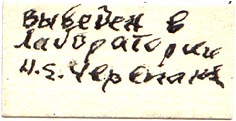 Выведен в
лаборатории
Н.Е. Черепанк